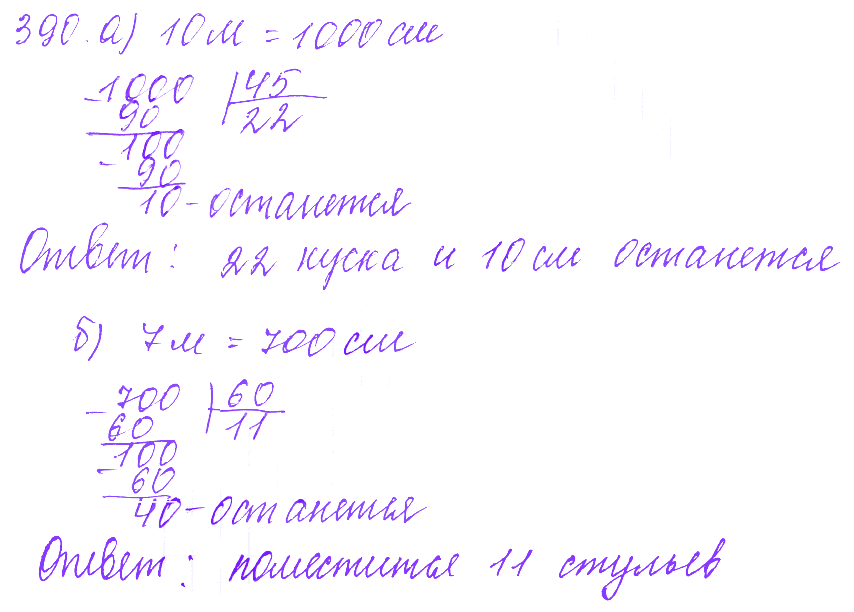 390. а) 10 м = 1000 см
- 1000 | 45
90 22
100
- 90
10 - останется
Ответ: 22 куска и 10 см останется
б) 7 м = 700 см
- 700 | 60
60 11
100
- 60
40 - останется
Ответ: поместится 11 стульев